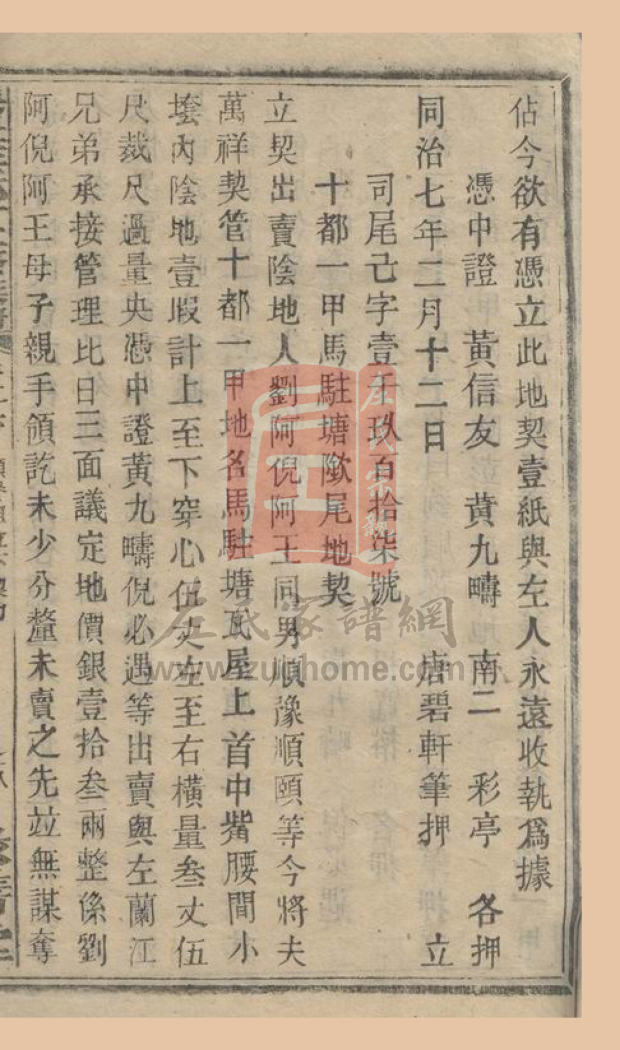 佔今欲有憑立此地契壹紙與左人永遠收執爲據
憑中證 黃信友 黃九疇 南二 彩亭 各押
同治七年二月十二日 唐碧軒筆押 立
司尾己字壹千玖百拾柒號
十都一甲馬駐塘歘尾地契
立契出賣陰地人劉阿倪阿王同男順豫順頤等今將夫
萬祥契管十都一甲地名馬駐塘瓦屋上首中嘴腰間小
塆內陰地壹叚計上至下穿心伍丈左至右橫量叁丈伍
尺裁尺過量央憑中證黃九疇倪必遇等出賣與左蘭江
兄弟承接管理比日三面議定地價銀壹拾叁兩整係劉
阿倪阿王母子親手領訖未少分釐未賣之先竝無謀奪
左氏家譜網
www.zuojhome.com